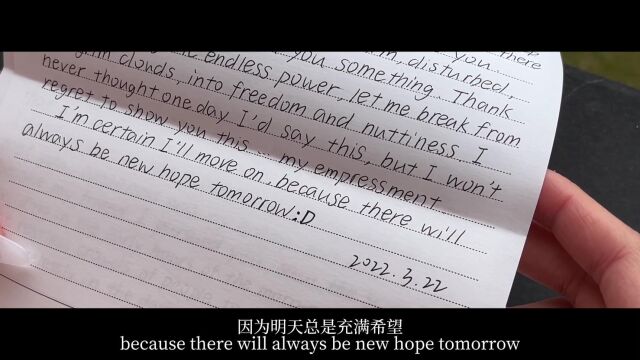 there
disturbed,
you something. Thank
endless power, let me break from
clouds, into freedom and nuttiness. I
never thought one day I'd say this, but I won't
regret to show you this my empressment
I'm certain I'll move on, because there will
always be new hope tomorrow:D
2022.3.22
因为明天总是充满希望
because there will always be new hope tomorrow